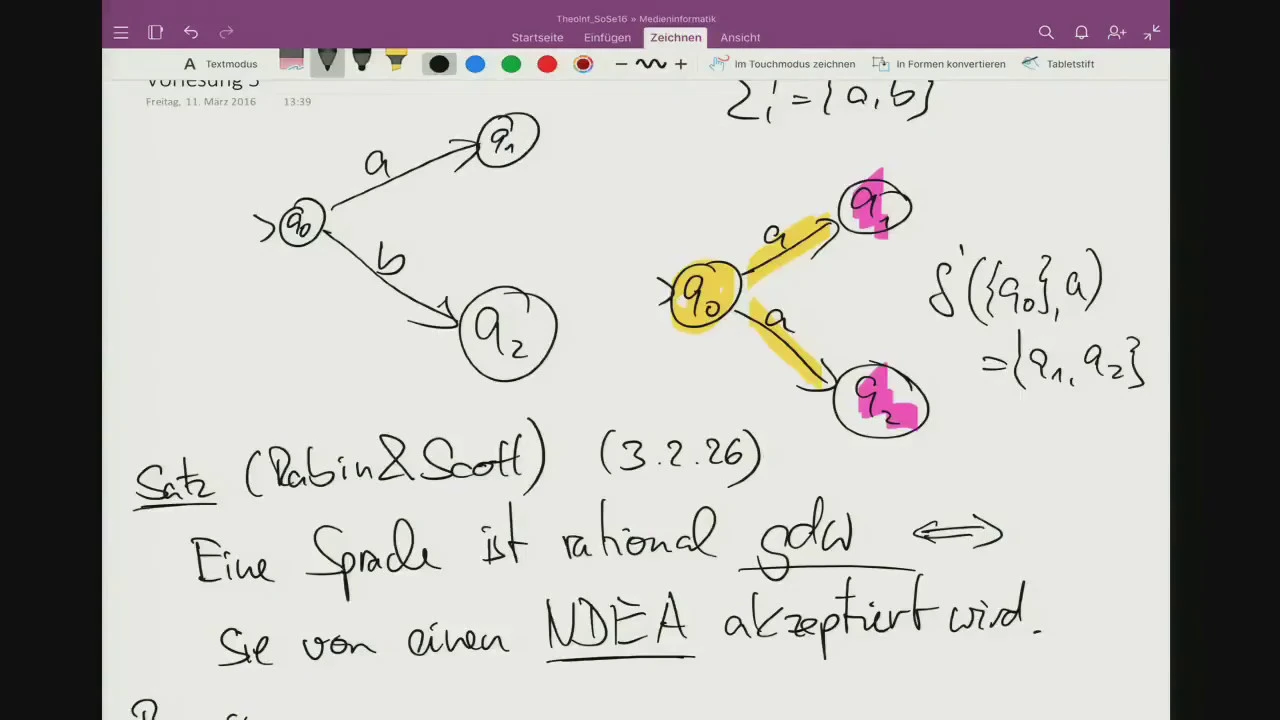 TheoInf_SoSe16 » Medieninformatik
Startseite Einfügen Zeichnen Ansicht
A Textmodus
Im Touchmodus zeichnen
In Formen konvertieren
Tabletstift
Vorlesung 3
Freitag, 11. März 2016 13:39
Σ' = {a, b}
a
q1
q0
b
q2
a
q1
q0
a
q2
δ'({q0}, a)
= {q1, q2}
Satz (Rabin & Scott) (3.2.26)
Eine Sprache ist rational gdw ⟺
sie von einen NDEA akzeptiert wird.